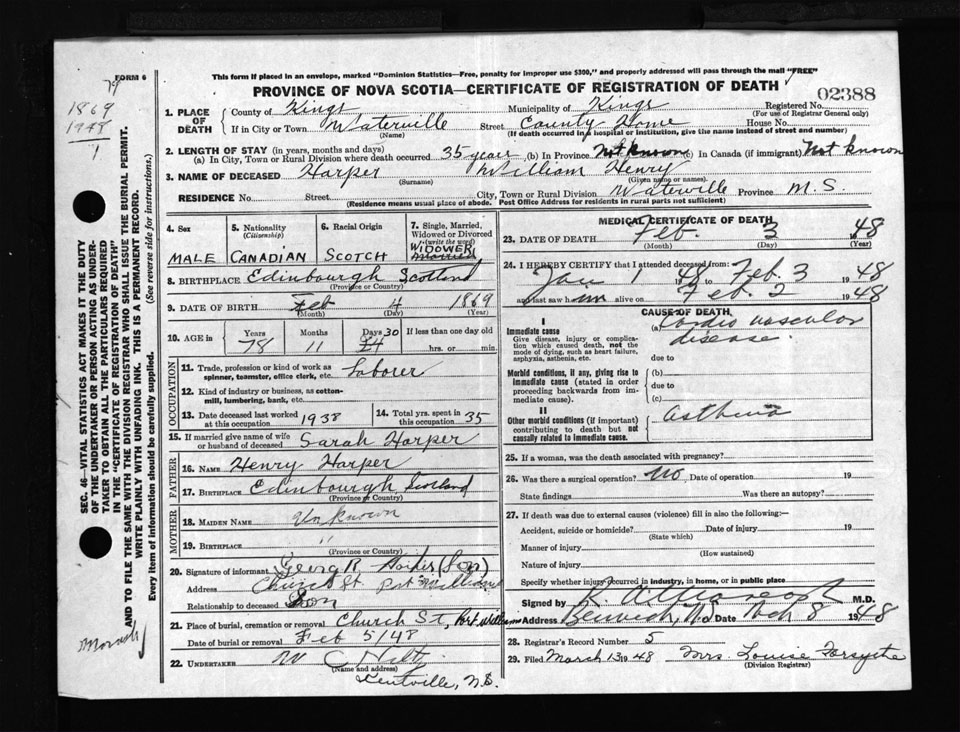 FORM 6
79
1869
1948
1
This form if placed in an envelope, marked "Dominion Statistics—Free, penalty for improper use $300," and properly addressed will pass through the mail "FREE"
PROVINCE OF NOVA SCOTIA—CERTIFICATE OF REGISTRATION OF DEATH
02388
1. PLACE OF DEATH County of Kings Municipality of Kings Registered No.
(For use of Registrar General only)
If in City or Town Waterville Street County Home House No.
(Name) (If death occurred in a hospital or institution, give the name instead of street and number)
2. LENGTH OF STAY (in years, months and days)
(a) In City, Town or Rural Division where death occurred 35 years (b) In Province Not known (c) In Canada (if immigrant) Not known
3. NAME OF DECEASED Harper William Henry
(Surname) (Given name or names)
RESIDENCE No. Street City, Town or Rural Division Waterville Province N.S.
(Residence means usual place of abode. Post Office Address for residents in rural parts not sufficient)
4. Sex 5. Nationality (Citizenship) 6. Racial Origin 7. Single, Married, Widowed or Divorced (write the word)
MALE CANADIAN SCOTCH WIDOWER Married
8. BIRTHPLACE Edinbourgh Scotland
(Province or Country)
9. DATE OF BIRTH Feb 4 1869
(Month) (Day) (Year)
10. AGE in Years Months Days If less than one day old
78 11 30 hrs. or min.
OCCUPATION
11. Trade, profession or kind of work as spinner, teamster, office clerk, etc. Laborer
12. Kind of industry or business, as cotton-mill, lumbering, bank, etc.
13. Date deceased last worked at this occupation 1938 14. Total yrs. spent in 35
15. If married give name of wife or husband of deceased Sarah Harper
FATHER
16. NAME Henry Harper
17. BIRTHPLACE Edinbourgh Scotland
(Province or Country)
MOTHER
18. MAIDEN NAME Unknown
19. BIRTHPLACE "
(Province or Country)
20. Signature of informant Georg R Harper (Son)
Address Church St. Port Williams
Relationship to deceased Son
21. Place of burial, cremation or removal Church St, Port William
Date of burial or removal Feb 5/48
22. UNDERTAKER W C Hiltz
(Name and address)
Kentville, N.S.
MEDICAL CERTIFICATE OF DEATH
23. DATE OF DEATH Feb. 3 1948
(Month) (Day) (Year)
24. I HEREBY CERTIFY that I attended deceased from:
Jan 1 1948 to Feb. 3 1948
and last saw him alive on Feb. 2 1948
CAUSE OF DEATH
I
Immediate cause
Give disease, injury or complication which caused death, not the mode of dying, such as heart failure, asphyxia, asthenia, etc.
(a) Cardio vascular disease
due to
Morbid conditions, if any, giving rise to immediate cause (stated in order proceeding backwards from immediate cause).
(b)
due to
(c)
II
Other morbid conditions (if important) contributing to death but not causally related to immediate cause.
asthma
25. If a woman, was the death associated with pregnancy?
26. Was there a surgical operation? No Date of operation 19
State findings Was there an autopsy?
27. If death was due to external causes (violence) fill in also the following:-
Accident, suicide or homicide? Date of injury 19
(State which)
Manner of injury
(How sustained)
Nature of injury
Specify whether injury occurred in industry, in home, or in public place
Signed by M.D.
Address Berwick, N.S. 8 1948
28. Registrar's Record Number 5
29. Filed March 13 1948 Mrs. Louise Forsythe
(Division Registrar)
SEC. 46—VITAL STATISTICS ACT MAKES IT THE DUTY
OF THE UNDERTAKER OR PERSON ACTING AS UNDER-
TAKER TO OBTAIN ALL THE PARTICULARS REQUIRED
IN THE "CERTIFICATE OF REGISTRATION OF DEATH"
AND TO FILE THE SAME WITH THE DIVISION REGISTRAR WHO SHALL ISSUE THE BURIAL PERMIT.
WRITE PLAINLY WITH UNFADING INK. THIS IS A PERMANENT RECORD.
Every item of information should be carefully supplied. (See reverse side for instructions.)